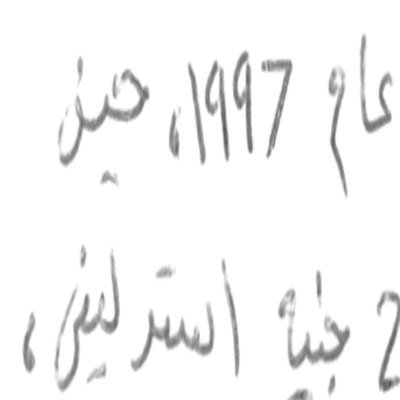 عام 1997، حين
2 جنيه استرليني،